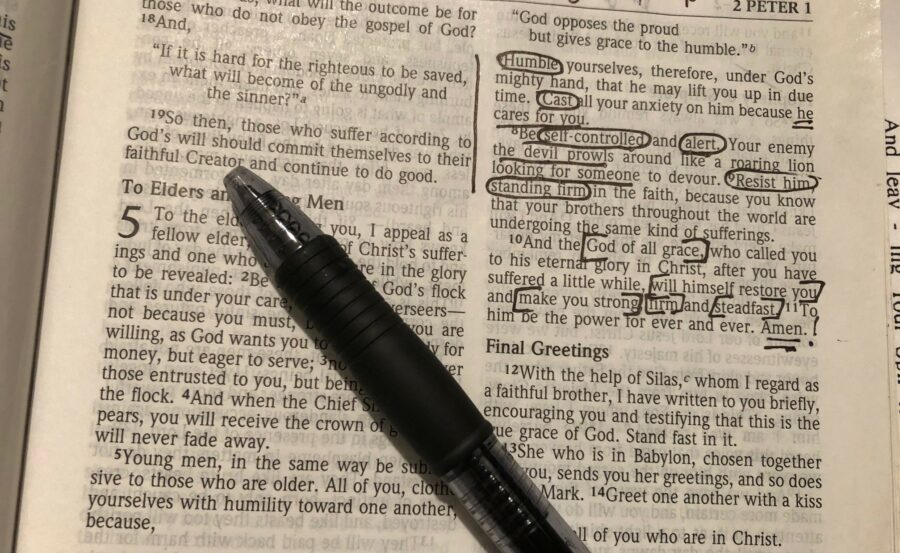 2 PETER 1
what will the outcome be for
those who do not obey the gospel of God?
18And,
"If it is hard for the righteous to be saved,
what will become of the ungodly and
the sinner?"a
19So then, those who suffer according to
God's will should commit themselves to their
faithful Creator and continue to do good.
To Elders an Men
5 To the you, I appeal as a
fellow elder, of Christ's suffer-
ings and one who re in the glory
to be revealed: 2Be of God's flock
that is under your care, verseers—
not because you must, you are
willing, as God wants you to for
money, but eager to serve; 3 ver
those entrusted to you, but being
the flock. 4And when the Chief
pears, you will receive the crown of
will never fade away.
5Young men, in the same way be sub
sive to those who are older. All of you, clothe
yourselves with humility toward one another,
because,
"God opposes the proud
but gives grace to the humble."b
Humble yourselves, therefore, under God's
mighty hand, that he may lift you up in due
time. Cast all your anxiety on him because he
cares for you.
8Be self-controlled and alert. Your enemy
the devil prowls around like a roaring lion
looking for someone to devour. 9Resist him,
standing firm in the faith, because you know
that your brothers throughout the world are
undergoing the same kind of sufferings.
10And the God of all grace, who called you
to his eternal glory in Christ, after you have
suffered a little while, will himself restore you
and make you strong, firm and steadfast. 11To
him be the power for ever and ever. Amen.!
Final Greetings
12With the help of Silas,c whom I regard as
a faithful brother, I have written to you briefly,
encouraging you and testifying that this is the
ue grace of God. Stand fast in it.
13She who is in Babylon, chosen together
you, sends you her greetings, and so does
Mark. 14Greet one another with a kiss
ll of you who are in Christ.
And leav -
ing